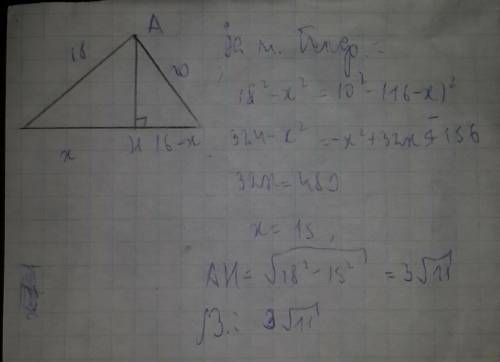 A
18
10
x
H
16-x
За т. Піфаг.:
18² - x² = 10² - (16-x)²
324 - x² = -x² + 32x - 156
32x = 480
x = 15,
AH = √18² - 15² = 3√11
В.: 3√11